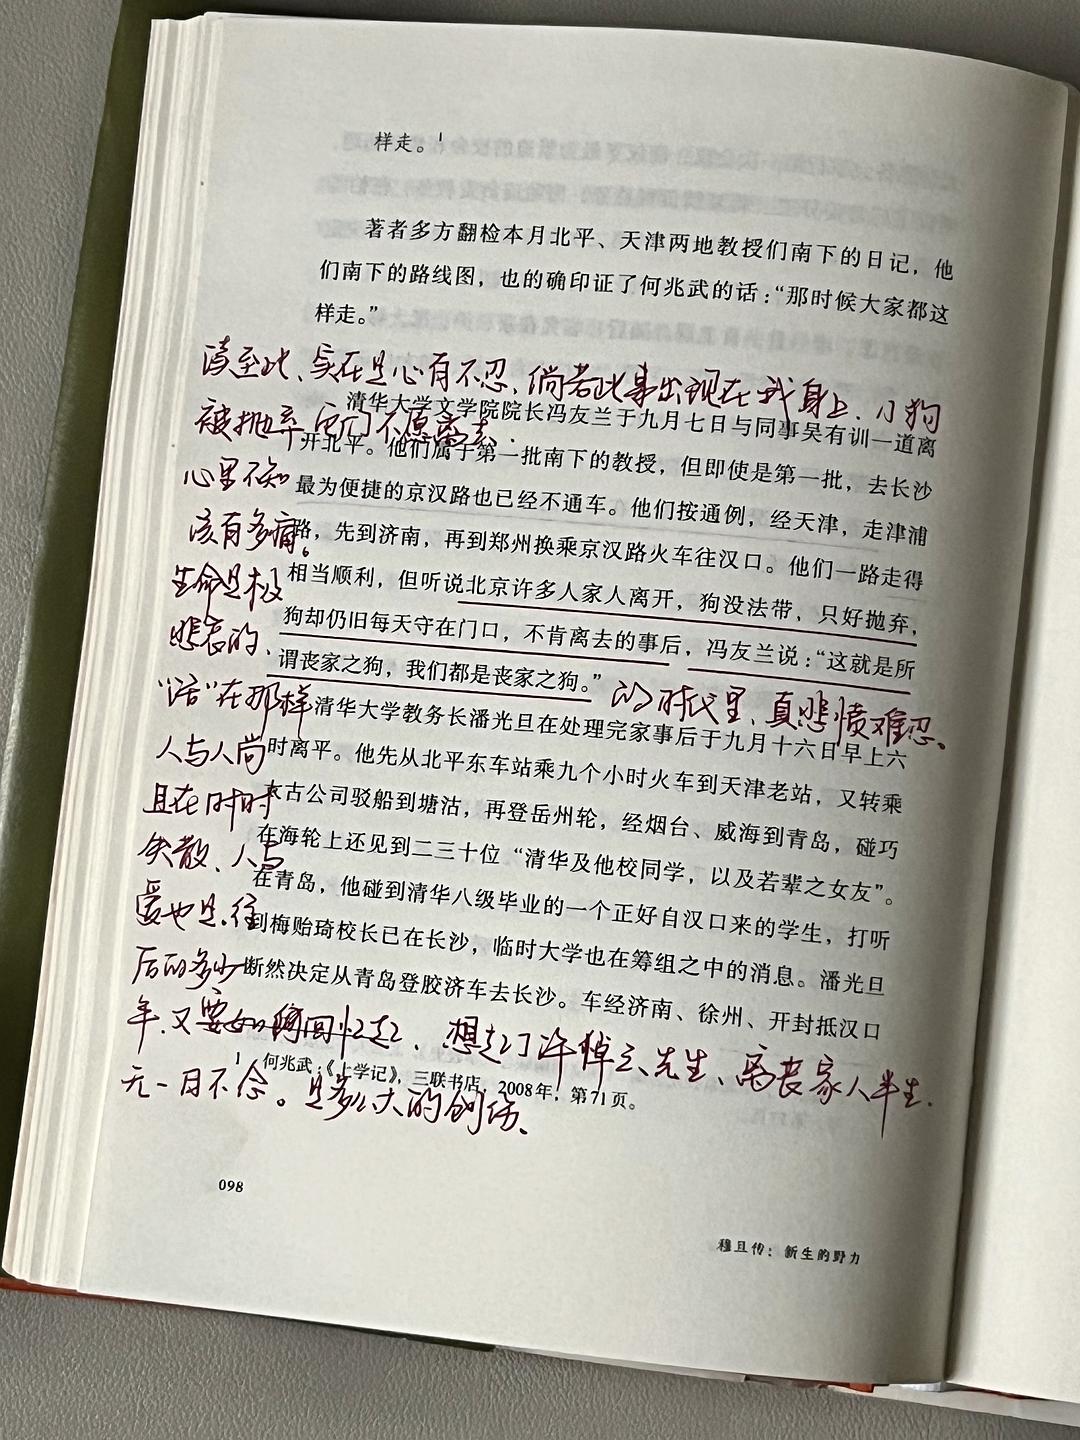 样走。¹
著者多方翻检本月北平、天津两地教授们南下的日记，他
们南下的路线图，也的确印证了何兆武的话：“那时候大家都这
样走。”
读至此、实在是心有不忍、倘若此事出现在我身上、小狗
清华大学文学院院长冯友兰于九月七日与同事吴有训一道离
被抛弃它们不愿离去、
开北平。他们属于第一批南下的教授，但即使是第一批，去长沙
心里不知
最为便捷的京汉路也已经不通车。他们按通例，经天津，走津浦
该有多痛。
路，先到济南，再到郑州换乘京汉路火车往汉口。他们一路走得
生命是极
相当顺利，但听说北京许多人家人离开，狗没法带，只好抛弃，
悲哀的、
狗却仍旧每天守在门口，不肯离去的事后，冯友兰说：“这就是所
谓丧家之狗，我们都是丧家之狗。”
“活”在那样的时代里、真悲愤难忍。
清华大学教务长潘光旦在处理完家事后于九月十六日早上六
人与人尚
时离平。他先从北平东车站乘九个小时火车到天津老站，又转乘
且在时时
古公司驳船到塘沽，再登岳州轮，经烟台、威海到青岛，碰巧
失散、人与
在海轮上还见到二三十位“清华及他校同学，以及若辈之女友”。
在青岛，他碰到清华八级毕业的一个正好自汉口来的学生，打听
爱也是、往
到梅贻琦校长已在长沙，临时大学也在筹组之中的消息。潘光旦
后的多少
断然决定从青岛登胶济车去长沙。车经济南、徐州、开封抵汉口
年、又要如何回忆起、想起了许倬云先生、离丧家人半生、
1 何兆武：《上学记》，三联书店，2008年，第71页。
无一日不念。是多么大的创伤、
098
穆旦传：新生的野力